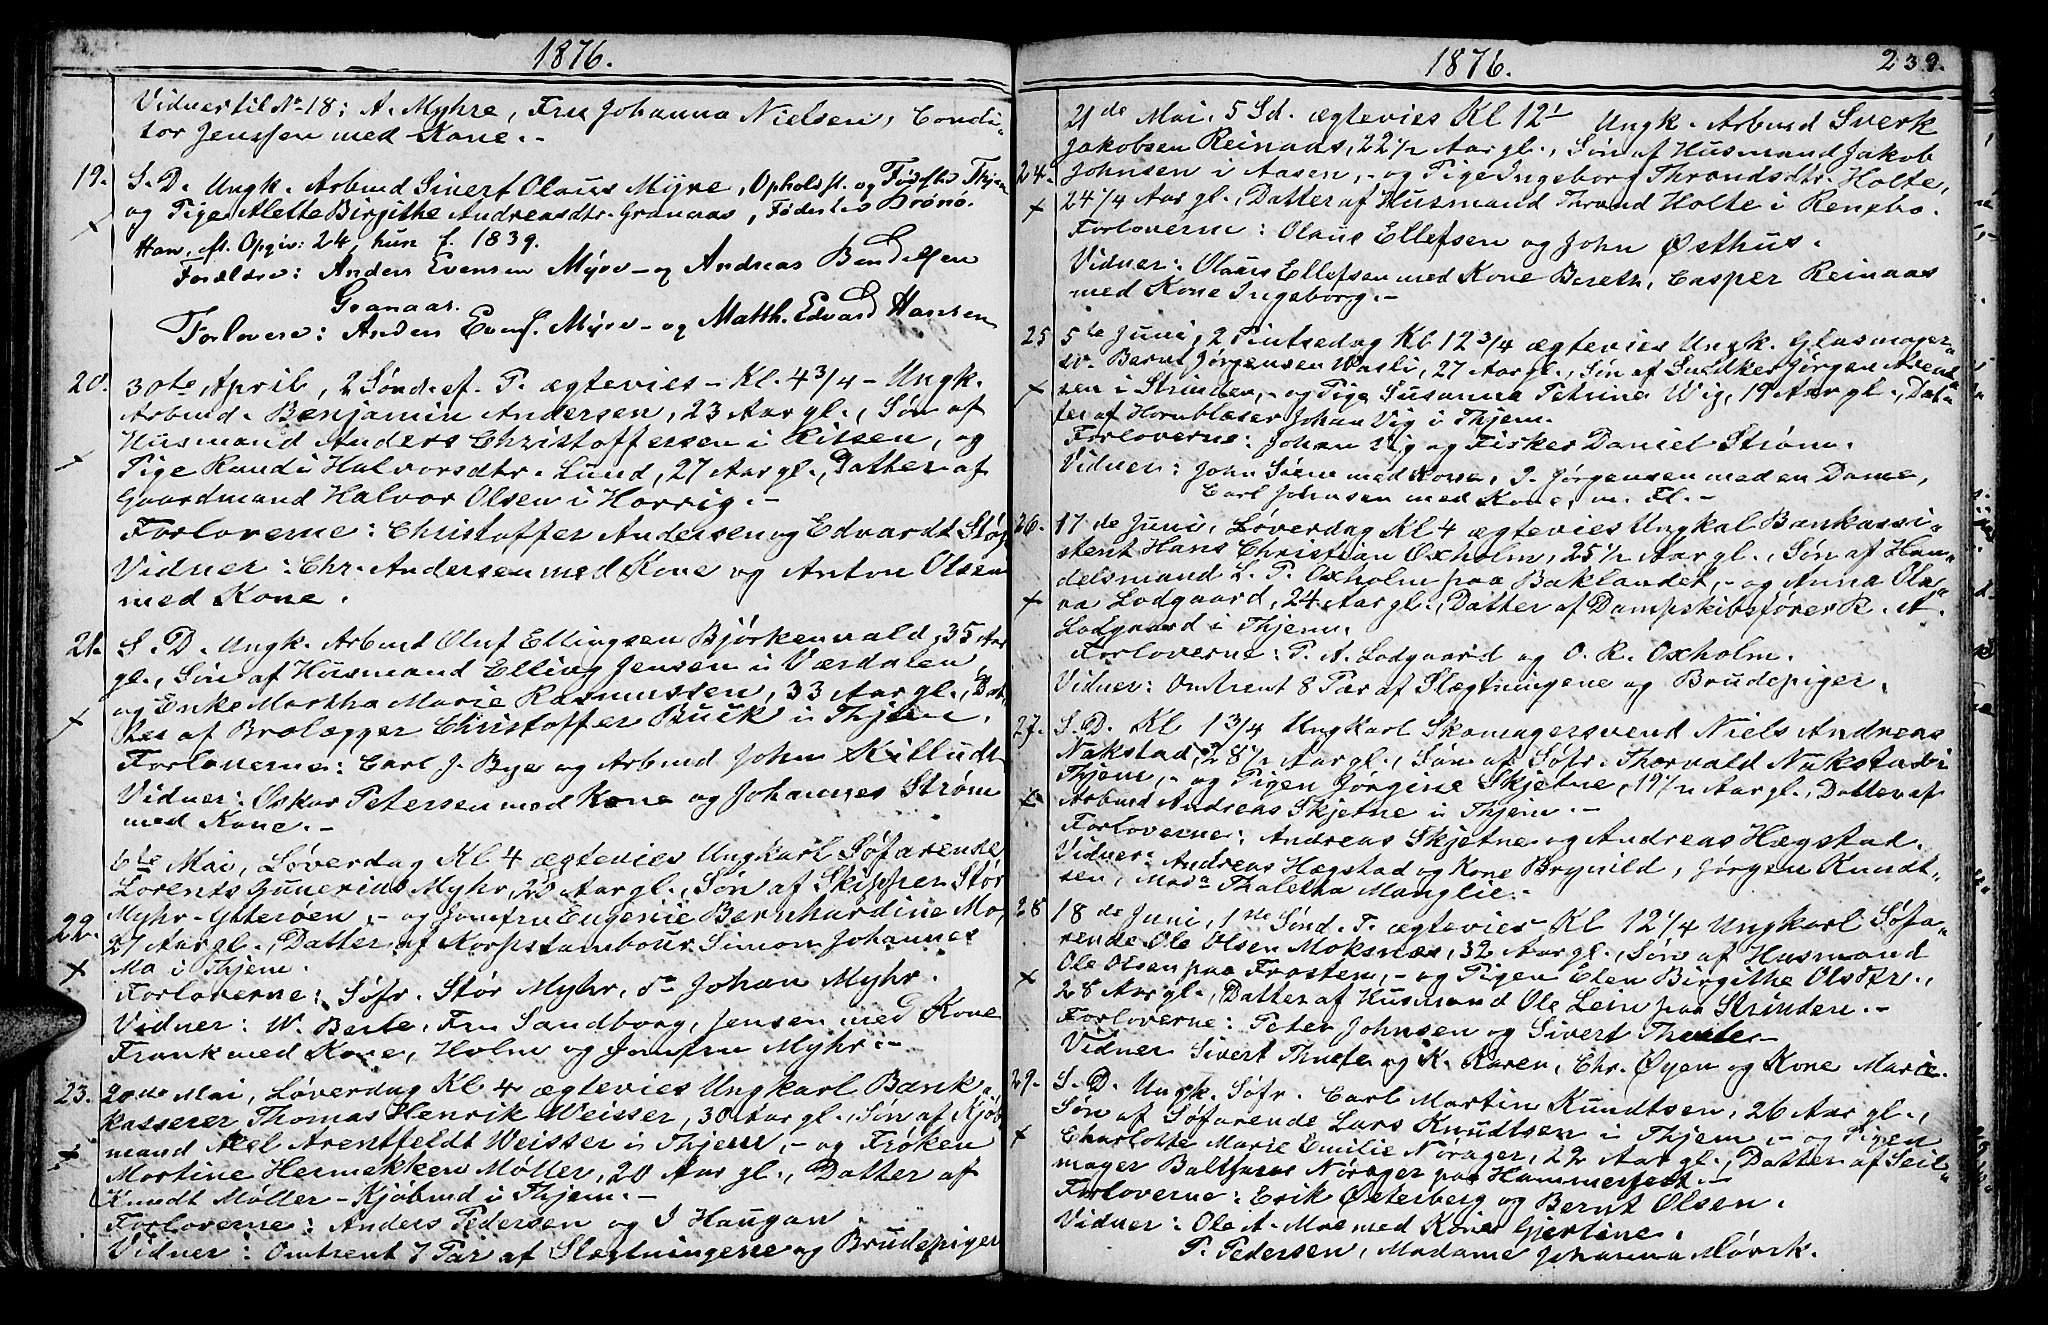 1876.
Vidner til No 18: A. Myhre, Fru Johanna Nielsen, Condi-
tor Jenssen med Kone.-
19. S. D. Ungk. Arbmd Sivert Olaus Myre, Opholdsst. og Fødested Thjem
og Pige Alette Birgithe Andreasdtr. Granaas, Fødested Brønø.
Han, Opgiv: 24, hun f. 1839.
Forældre: Anders Evensen Myre og Andreas Bendiksen
Granaas.
Forlovere: Anders Evens. Myre og Matth. Edvard Hansen
20. 30te April, 2 Sønd. ef. P. ægtevies - Kl. 4 3/4 - Ungk.
Arbmd. Benjamin Andersen, 23 Aar gl., Søn af
Husmand Anders Christoffersen i Ritsen, og
Pige Randi Halvorsdtr. Lund, 27 Aar gl., Datter af
Gaardmand Halvor Olsen i Horrig.-
Forloverne: Christoffer Andersen og Edvardt Støp
Vidner: Chr. Andersen med Kone og Anton Olsen
med Kone.
21. S. D. Ungk. Arbmd Oluf Ellingsen Bjørkenvald, 35 Aar
gl., Søn af Husmand Elling Jensen i Værdalen,
og Enke Martha Marie Rasmussen, 33 Aar gl., Dat-
ter af Brolægger Christoffer Buck i Thjem.
Forloverne: Carl J. Bye og Arbmd John
Vidner: Oskar Petersen med Kone og Johannes Strøm
med Kone.-
6te Mai, Løverdag Kl 4 ægtevies Ungkarl Søfarende
Lorents Gunerius Myhr, 22 Aar gl., Søn af Skipper Stør
22. Myhr - Ytterøen, - og Jomfru Eugenie Bernhardine Mo,
27 Aar gl., Datter af Korpstambour Simon Johannes
Mo i Thjem.
Forloverne: Søfr. Stør Myhr, do Johan Myhr.
Vidner: W. Berle, Fru Sandborg, Jensen med Kone
Frank med Kone, Holm og Jomfru Myhr.-
23. 20de Mai, Løverdag Kl 4 ægtevies Ungkarl Bank-
kasserer Thomas Henrik Weisser, 30 Aar gl., Søn af Kjøb-
mand Axel Arentfeldt Weisser i Thjem, - og Frøken
Martine Hermekken Møller, 20 Aar gl., Datter af
Knudt Møller - Kjøbmd i Thjem.-
Forloverne: Anders Pedersen og I Haugan
Vidner: Omtrent 7 Par af Slægtningene og Brudepiger
1876. 239.
21de Mai, 5 Sd. ægtevies Kl 12 1 Ungk. Arbmd Sverk
Jakobsen Reinaas, 22 1/2 Aar gl., Søn af Husmand Jakob
24. Johnsen i Aasen, - og Pige Ingeborg Throndsdtr. Holte,
24 1/4 Aar gl., Datter af Husmand Thrond Holte i Renebo.
Forloverne: Olaus Ellefsen og John Østhus.
Vidner: Olaus Ellefsen med Kone Bereth, Casper Reinaas
med Kone Ingeborg.-
25 5te Juni, 2 Pintsedag Kl 12 3/4 ægtevies Ungk. Glasmager-
sv. Bernt Jørgensen Wasli, 27 Aar gl., Søn af Snidker Jørgen Arent-
sen i Strinden, - og Pige Susanna Petrina Wig, 19 Aar gl., Dat-
ter af Hornblæser Johan Vig i Thjem.
Forloverne: Johan Vig og Fisker Daniel Strøm.
Vidner: John med Kone, J. Jørgensen med en Dame,
Carl Johnsen med Kone, m. Fl.-
26. 17de Juni, Løverdag Kl 4 ægtevies Ungkal Bankassi-
stent Hans Christian Oxholm, 25 1/2 Aar gl., Søn af Han-
delsmand L. P. Oxholm paa Baklandet, - og Anna Ola-
va Lodgaard, 24 Aar gl., Datter af Dampskibsfører R. A.
Lodgaard i Thjem.
Forloverne: P. A. Lodgaard og O. R. Oxholm.
Vidner: Omtrent 8 Par af Slægtningene og Brudepiger.
27. S. D. Kl 1 3/4 Ungkarl Skomagersvend Niels Andreas
Nakstad, 28 1/2 Aar gl., Søn af Søfr. Thorvald Nakstad i
Thjem, - og Pigen Jørgine Skjetne, 19 1/2 Aar gl., Datter af
Arbmd Andreas Skjetne i Thjem.-
Forloverne: Andreas Skjetne og Andreas Hægstad.
Vidner: Andreas Hægstad og Kone Brynild, Jørgen Knudt-
sen, Mada Thaletha Manglie.-
28 18de Juni, 1ste Sønd. T. ægtevies Kl 12 1/4 Ungkarl Søfa-
rende Ole Olsen Moksnes, 32 Aar gl., Søn af Husmand
Ole Olsen paa Frosten, - og Pigen Elen Birgithe Olsdtr.,
28 Aar gl., Datter af Husmand Ole Lein paa Strinden.-
Forloverne: Peter Johnsen og Sivert Thuete
Vidner Sivert Thuete og K. Karen, Chr. Øyen og Kone Marie.
29. S. D. Ungk. Søfr. Carl Martin Knudtsen, 26 Aar gl.,
Søn af Søfarende Lars Knudtsen i Thjem, - og Pigen
Charlotte Marie Emilie Norager, 22 Aar gl., Datter af Seil-
mager Baltser Nørager paa Hammerfest.-
Forloverne: Erik Østerberg og Bernt Olsen.
Vidner: Ole A. Moe med Kone Gjertine.
P. Pedersen, Madame Johanna Mørck.